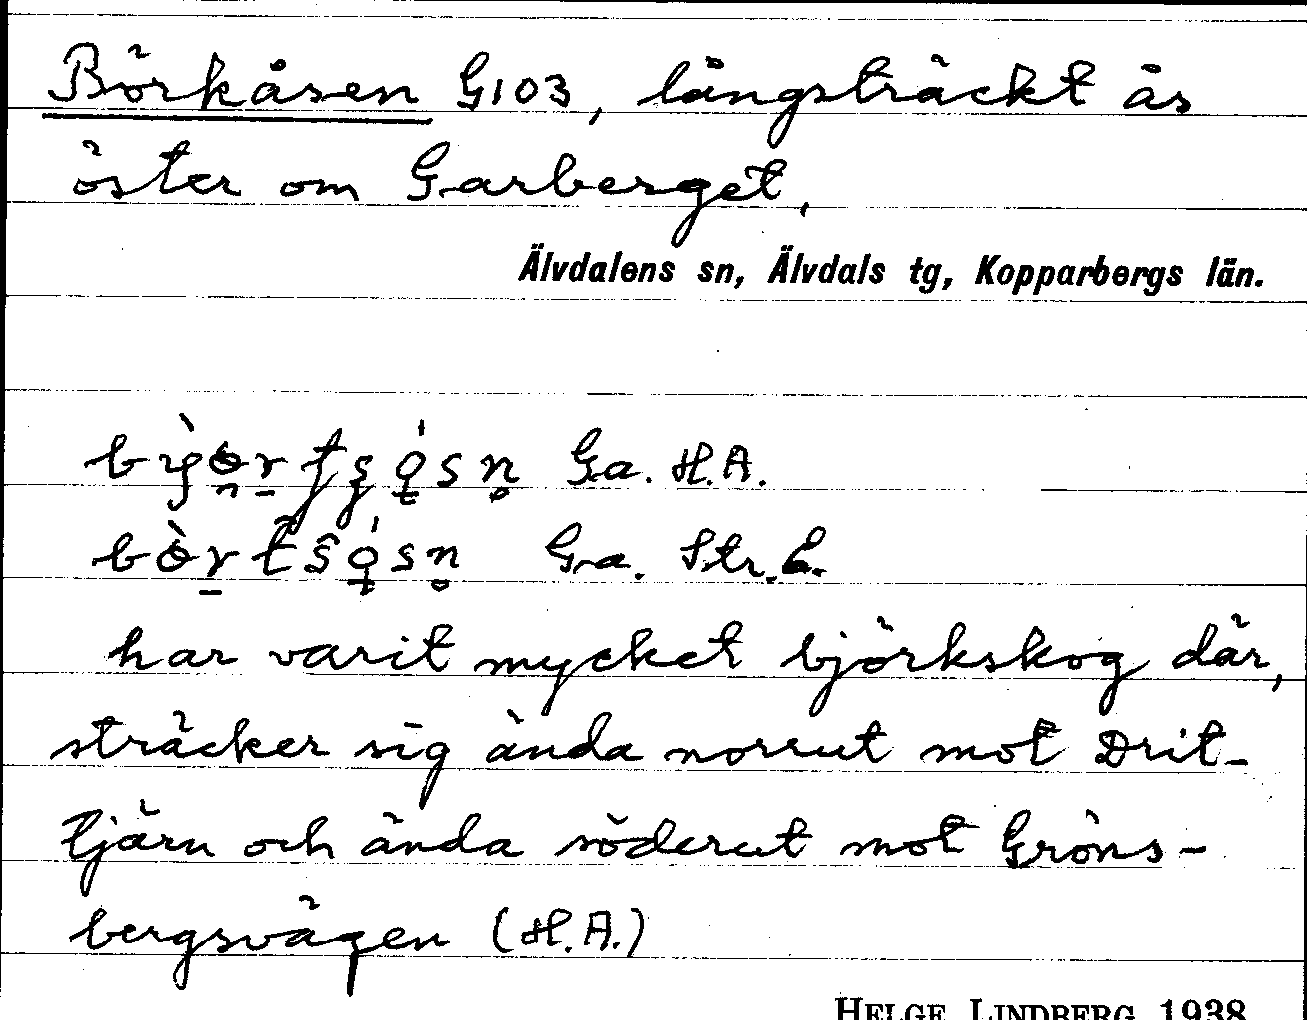 Börkåsen G103, långsträckt ås
öster om Garberget,
Älvdalens sn, Älvdals tg, Kopparbergs län.
Ga. H.A.
Ga. Str.E.
har varit mycket björkskog där,
sträcker sig ända norrut mot Drit-
tjärn och ända söderut mot Gröns-
bergsvägen (H.A.)
HELGE LINDBERG 1938